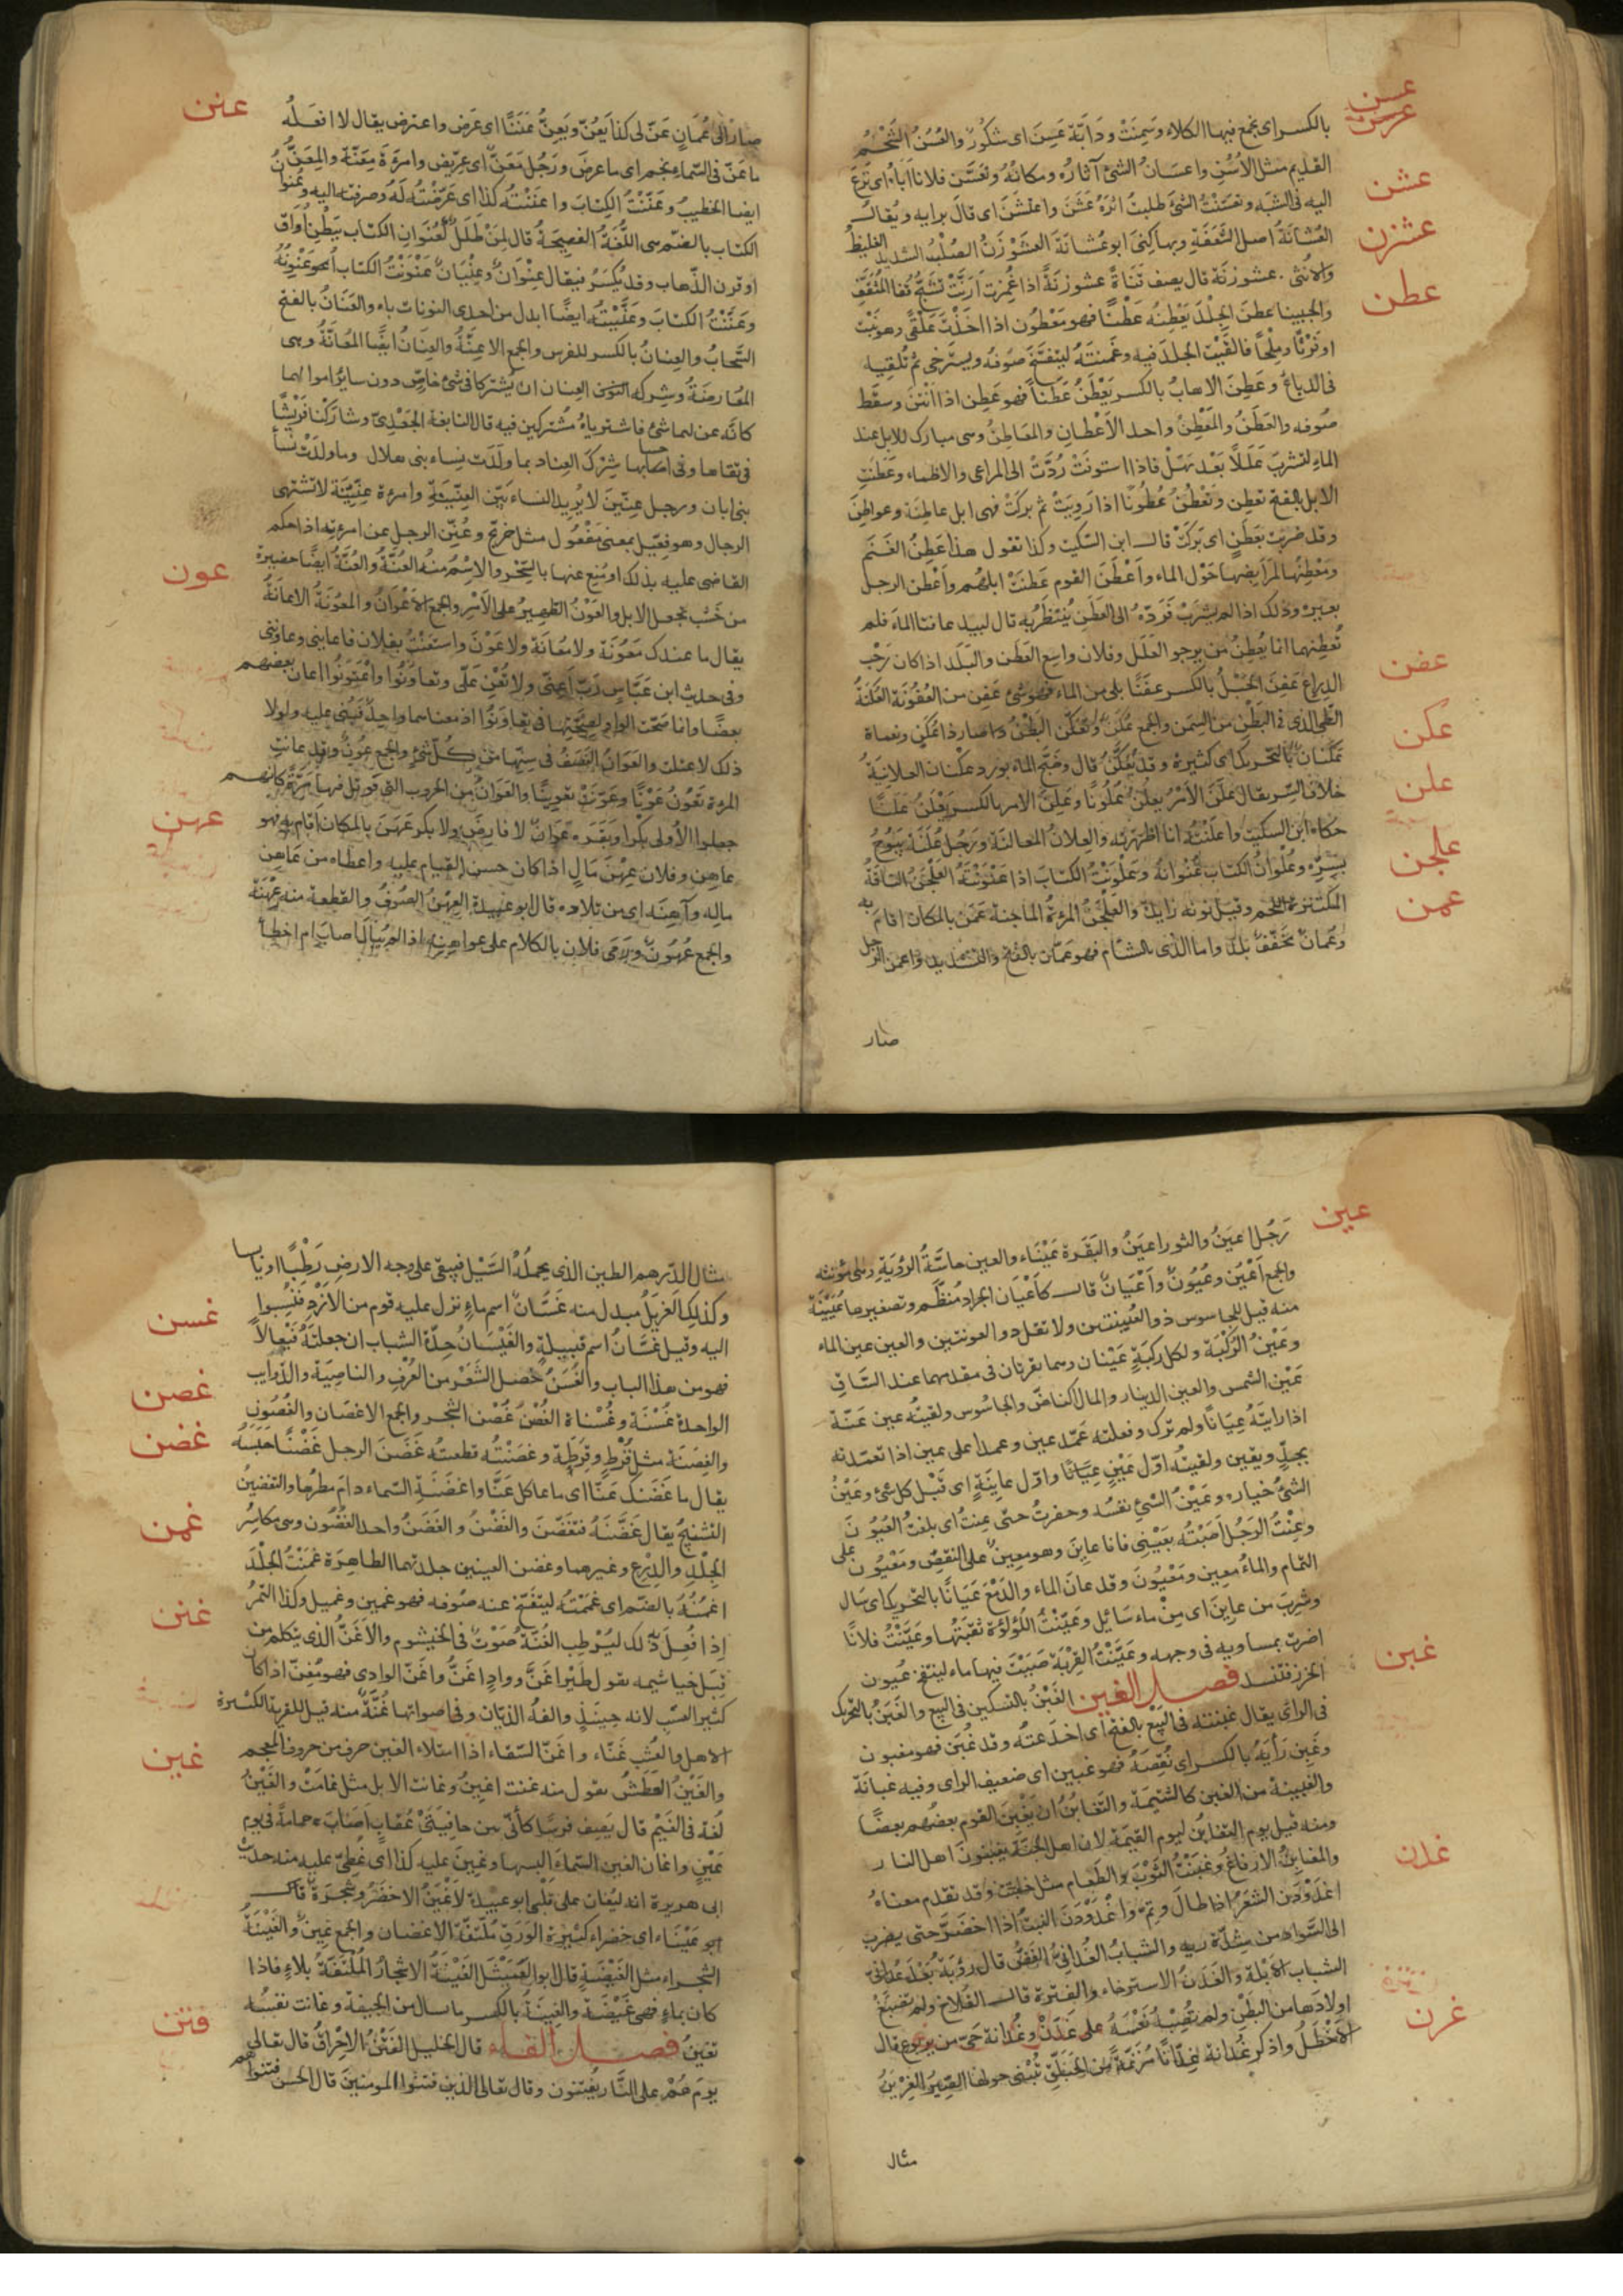 عسن
عرسن
بالكسر اى نجع فيها الكلاء وسمنت ودابة عسن اى شكور والعسن الشحم
القديم مثل الأسن واعسان الشئ آثاره ومكانه وتعسن فلان اباه اى نزع
عشن
اليه فى الشبه وتعسنت الشئ طلبت اثره عشن واعتشن اى قال برايه ويقال
عشزن
العشانة اصل السعفة وبها كنى ابو عشانة العشوزن الصلب الشديد الغليظ
والانثى عشوزنة قال يصف قناة عشوزنة اذا غمزت ارنت تشج قفا المثقف
عطن
والجبينا عطن الجلد يعطنه عطنا فهو معطون اذا اخذت علقى وهو نبت
او فرثا وملحا فالقيت الجلد فيه وغمنته ليتفتح صوفه ويسترخى ثم تلقيه
فى الدباغ وعطن الاهاب بالكسر يعطن عطنا فهو عطن اذا انتن وسقط
صوفه والعطن والمعطن واحد الاعطان والمعاطن وهى مبارك للابل عند
الماء لتشرب عللا بعد نهل فاذا استوفت ردت الى المراعى والاظماء وعطنت
الابل بالفتح تعطن وتعطن عطونا اذا رويت ثم بركت فهى ابل عاطنة وعواطن
وقد ضربت بعطن اى بركت قال ابن السكيت وكذا تقول هذا عطن الغنم
ومعطنها لمرابضها حول الماء واعطن القوم عطنت ابلهم واعطن الرجل
بعيره وذلك اذا لم يشرب فرده الى العطن ينتظر به قال لبيد عافتا الماء فلم
تعطنهما انما يعطن من يرجو العلل وفلان واسع العطن والبلد اذا كان رحب
عفن
الذراع عفن الحبل بالكسر عفنا بلى من الماء فهو شئ عفن من العفونة العكنة
عكن
الطى الذى فى البطن من السمن والجمع عكن وتعكن البطن صار ذا عكن ونعم
عكنان بالتحريك اى كثيرة وقد يسكن قال وصبح الماء بورد عكنان العلانية
علن
خلاف السر يقال علن الامر يعلن علونا وعلن الامر بالكسر يعلن علنا
حكاه ابن السكيت واعلنته انا اظهرته والعلان المعالنة ورجل علنة يبوح
علجن
بسره وعلوان الكتاب عنوانه وعلونت الكتاب اذا عنونته العلجن الناقة
عمن
المكتنزة اللحم وقيل نونه زايدة والعلجن المرءة الماجنة عمن بالمكان اقام به
وعمان مخفف بلد واما الذى بالشام فهو عمان بالفتح والتشديد واعمن الرجل
صار
عنن
صار الى عمان عن لى كذا يعن ويعن عننا اى عرض واعترض يقال لا افعله
ما عن فى السماء نجم اى ما عرض ورجل معن اى عريض وامرءة معنة والمعن
ايضا الخطيب وعننت الكتاب واعننته كذا اى عرضته له وصرفته اليه وعنوان
الكتاب بالضم هى اللغة الفصيحة قال لمن طلل كعنوان الكتاب ببطن اواق
او قرن الذهاب وقد يكسر فيقال عنوان وعنيان عنونت الكتاب اعنونه
وعننت الكتاب وعنيته ايضا ابدل من احدى النونات ياء والعنان بالفتح
السحاب والعنان بالكسر للفرس والجمع الاعنة والعنان ايضا المعانة وهى
المعارضة وشركة العنان ان يشتركا فى شئ خاص دون سائر اموالهما
كانه عن لهما شئ فاشترياه مشتركين فيه قال النابغة الجعدى وشاركنا قريشا
فى تقاها وفى احسابها شرك العنان بما ولدت نساء بنى هلال وما ولدت نسأ
بنى ابان ورجل عنين لا يريد النساء بين العنينة وامرءة عنينة لا تشتهى
الرجال وهو فعيل بمعنى مفعول مثل خريج وعنن الرجل عن امرءته اذا حكم
القاضى عليه بذلك او منع عنها بالسحر والاسم منه العنة والعنة ايضا حضيرة
عون
من خشب تجعل للابل والعون الظهير على الامر والجمع الاعوان والمعونة الاعانة
يقال ما عندك معونة ولا معانة ولا عون واستعنت بفلان فاعاننى وعاوننى
وفى حديث ابن عباس رب اعنى ولا تعن على وتعاونوا واعتونوا اعان بعضهم
بعضا وانما صحت الواو لصحتها فى تعاونوا اذ معناهما واحد فبنى عليه ولولا
ذلك لاعتلت والعوان النصف فى سنها من كل شئ والجمع عون وقد عانت
المرءة تعون عونا وعونت تعوينا والعوان من الحروب التى قوتل فيها مرة كانهم
عهن
جعلوا الأولى بكرا وبقرة عوان لا فارض ولا بكر عهن بالمكان اقام به فهو
عاهن وفلان عهن مال اذا كان حسن القيام عليه واعطاه من عاهن
ماله وآهنه اى من تلاده قال ابو عبيدة العهن الصوف والقطعة منه عهنة
والجمع عهون ورمى فلان بالكلام على عواهنه اذا لم يبال اصاب ام اخطأ
عين
رجل اعين والثور اعين والبقرة عيناء والعين حاسة الرؤية وهى مؤنثه
والجمع اعين وعيون واعيان قال كاعيان الجراد منظم وتصغيرها عيينة
منه قيل للجاسوس ذو العيينتين ولا تقل ذو العوينتين والعين عين الماء
وعين الركبة ولكل ركبة عينان وهما نقرتان فى مقدمهما عند الساق
عين الشمس والعين الدينار والمال الناض والجاسوس ولقيته عين عنة
اذا رايته عيانا ولم يرك وفعلته عمد عين وعمدا على عين اذا تعمدته
بجد ويقين ولقيته اول عين عيانا واول عاينة اى قبل كل شئ وعين
الشئ خياره وعين الشئ نفسه وحفرت حتى عنت اى بلغت العيون
وعنت الرجل اصبته بعينى فانا عاين وهو معين على النقص ومعيون على
التمام والماء معين ومعيون وقد عان الماء والدمع عيانا بالتحريك اى سال
وشرب من عاين اى من ماء سائل وعينت اللؤلؤة ثقبتها وعينت فلانا
اضرت بمساويه فى وجهه وعينت القربة صببت فيها ماء لينتفخ عيون
غبن
الخرز فتنسد فصل الغين الغبن بالتسكين فى البيع والغبن بالتحريك
فى الرأى يقال غبنته فى البيع بالفتح اى اخدعته وقد غبن فهو مغبون
وغبن رأيه بالكسر اى نقصه فهو غبين اى ضعيف الراى وفيه غبانة
والغبينة من الغبن كالشتيمة والتغابن ان يغبن القوم بعضهم بعضا
ومنه قيل يوم التغابن ليوم القيمة لان اهل الجنة يغبنون اهل النار
والمغابن الارفاغ وغبنت الثوب والطعام مثل خبنت وقد تقدم معناه
غدن
اغدودن الشعر اذا طال وتم واغدودن النبت اذا اخضر حتى يضرب
الى السواد من شدة ريه والشباب الغدانى الغض قال رؤبة بعد غدانى
الشباب الابله والغدن الاسترخاء والفترة قال القلاخ ولم تضع
اولادها من البطن ولم تصبه نعسة على غدن وغدانة حى من يربوع قال
غرن
الاخطل واذكر غدانة عدانا مزنمة من الحبلق تبنى حولها الصير الغرين
مثال
مثال الدرهم الطين الذى يحمله السيل فيبقى على وجه الارض رطبا او يابسا
غسن
وكذلك الغريل مبدل منه غسان اسم ماء نزل عليه قوم من الازد فنسبوا
اليه وقيل غسان اسم قبيلة والغيسان حدة الشباب ان جعلته فيعالا
فهو من هذا الباب والغسن خصل الشعر من العرف والناصية والذوايب
غصن
الواحدة غسنة وغسناة الغصن غصن الشجر والجمع الاغصان والغصون
غضن
والغصنة مثل قرط وقرطة وغصنته قطعته غضن الرجل غضنا حبسه
يقال ما غضنك عنا اى ما عاكك عنا واغضنت السماء دام مطرها والتغضين
التشنيج يقال غضنته فتغضن والغضن والغضن واحد الغضون وهى مكاسر
غمن
الجلد والدرع وغيرهما وغضن العينين جلدتهما الظاهرة غمنت الجلد
اغمنه بالضم اى غممته ليتفتح عنه صوفه فهو غمين وغميل وكذا التمر
غنن
اذا فعل ذلك ليرطب الغنة صوت فى الخيشوم والاغن الذى يتكلم من
قبل خياشيمه تقول طير اغن وواد اغن واغن الوادى فهو مغن اذا كان
كثير العشب لانه حينئذ والفه الذبان وفى اصواتها غنة منه قيل للقرية الكثيرة
غين
الاهل والعشب غناء واغن السقاء اذا امتلاء الغين حرف من حروف المعجم
والغين العطش تقول منه غنت اغين وغانت الابل مثل غامت والغين
لغة فى الغيم قال يصف فرسا كأنى بين خافيتى عقاب اصاب حمامة فى يوم
غين واغان الغين السماء البسها وغين عليه كذا اى غطى عليه منه حديث
ابى هريرة انه ليغان على قلبى ابو عبيدة الاغين الاخضر وشجرة قال
ابو غيناء اى خضراء كثيرة الورق ملتفة الاغصان والجمع غين والغينة
الشجراء مثل الغيضة قال ابو العميثل الغينة الاشجار الملتفة بلا ماء فاذا
كان بماء فهى غيضة والغينة بالكسر ما سال من الجيفة وغانت نفسه
فتن
تغين فصل الفاء قال الخليل الفتن الاحراق قال تعالى
يوم هم على النار يفتنون وقال تعالى الذين فتنوا المومنين قال الحسن فتنوهم